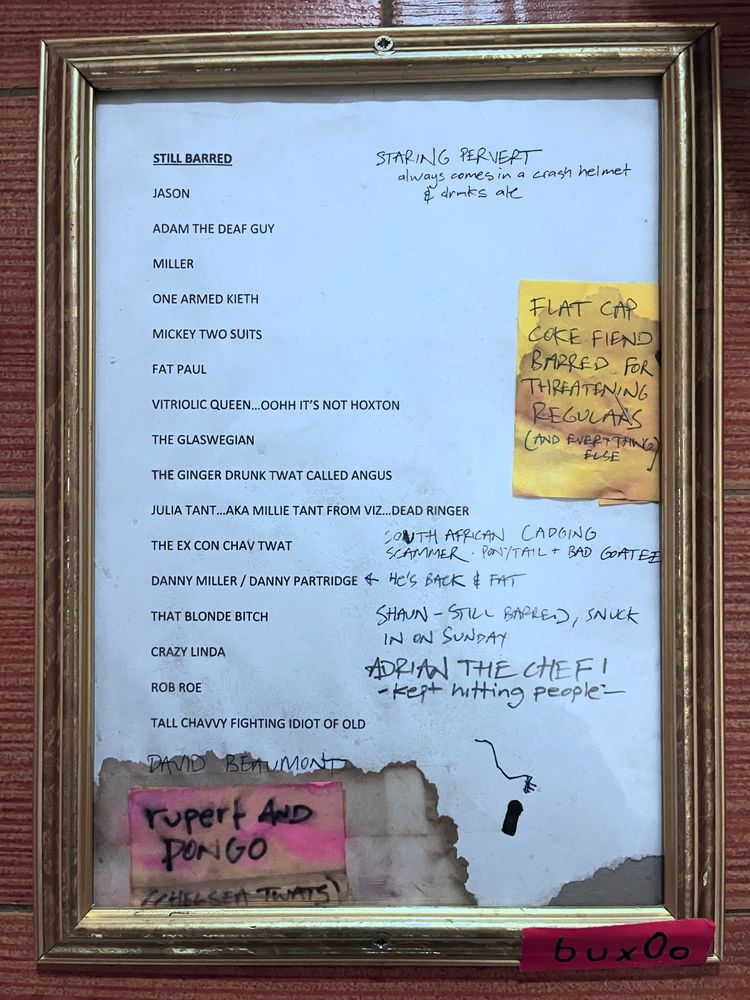 STILL BARRED
STARING PERVERT
always comes in a crash helmet
& drinks ale
JASON
ADAM THE DEAF GUY
MILLER
ONE ARMED KIETH
MICKEY TWO SUITS
FAT PAUL
FLAT CAP
COKE FIEND
BARRED FOR
THREATENING
REGULARS
(AND EVERYTHING
ELSE)
VITRIOLIC QUEEN...OOHH IT'S NOT HOXTON
THE GLASWEGIAN
THE GINGER DRUNK TWAT CALLED ANGUS
JULIA TANT...AKA MILLIE TANT FROM VIZ...DEAD RINGER
THE EX CON CHAV TWAT
SOUTH AFRICAN CADGING
SCAMMER. PONYTAIL + BAD GOATEE
DANNY MILLER / DANNY PARTRIDGE ← HE'S BACK & FAT
THAT BLONDE BITCH
SHAUN - STILL BARRED, SNUCK
IN ON SUNDAY
CRAZY LINDA
ADRIAN THE CHEF!
- kept hitting people -
ROB ROE
TALL CHAVVY FIGHTING IDIOT OF OLD
DAVID BEAUMONT
rupert AND
PONGO
(CHELSEA TWATS)
bux0o